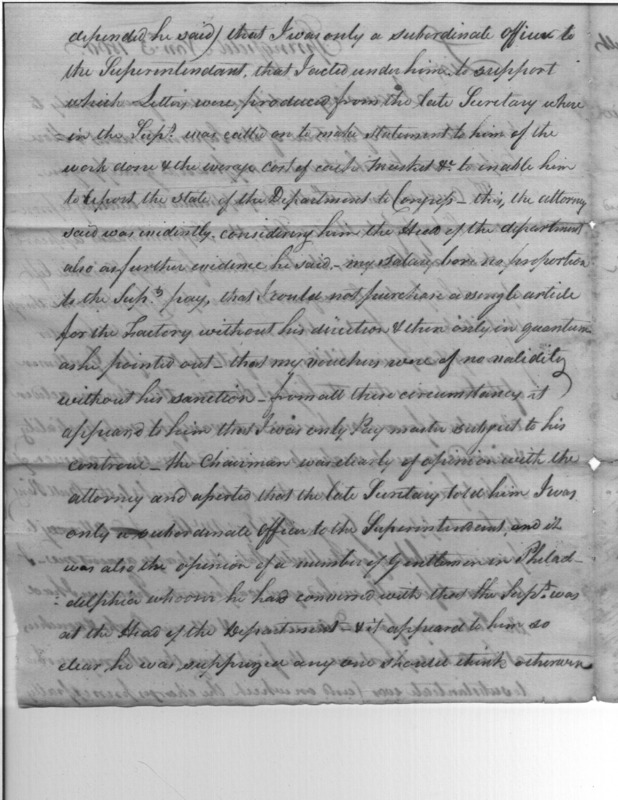 depended he said) that I was only a subordinate officer to
the Superintendant, that I acted under him, to support
which Letters were produced from the late Secretary where
-in the Supt. was called on to make statement to him of the
work done & the average cost of each musket &c to enable him
to report the state of the Department to Congress - this, the attorney
said was evidently considering him the Head of the department
also as further evidence he said - my salary bore no proportion
to the Supts. pay, that I could not purchase a single article
for the Factory without his direction & then only in quantum
as he pointed out - that my vouchers were of no validity
without his sanction - from all these circumstances, it
appeard to him that I was only Pay master subject to his
controul - the Chairman was clearly of opinion with the
attorney and asserted that the late Secretary told him I was
only a subordinate Officer to the Superintendent, and it
was also the opinion of a number of Gentlemen in Philad-
-delphia whoom he had conversed with that the Supt. was
at the Head of the Department - & it appeard to him so
clear, he was supprized any one should think otherwise